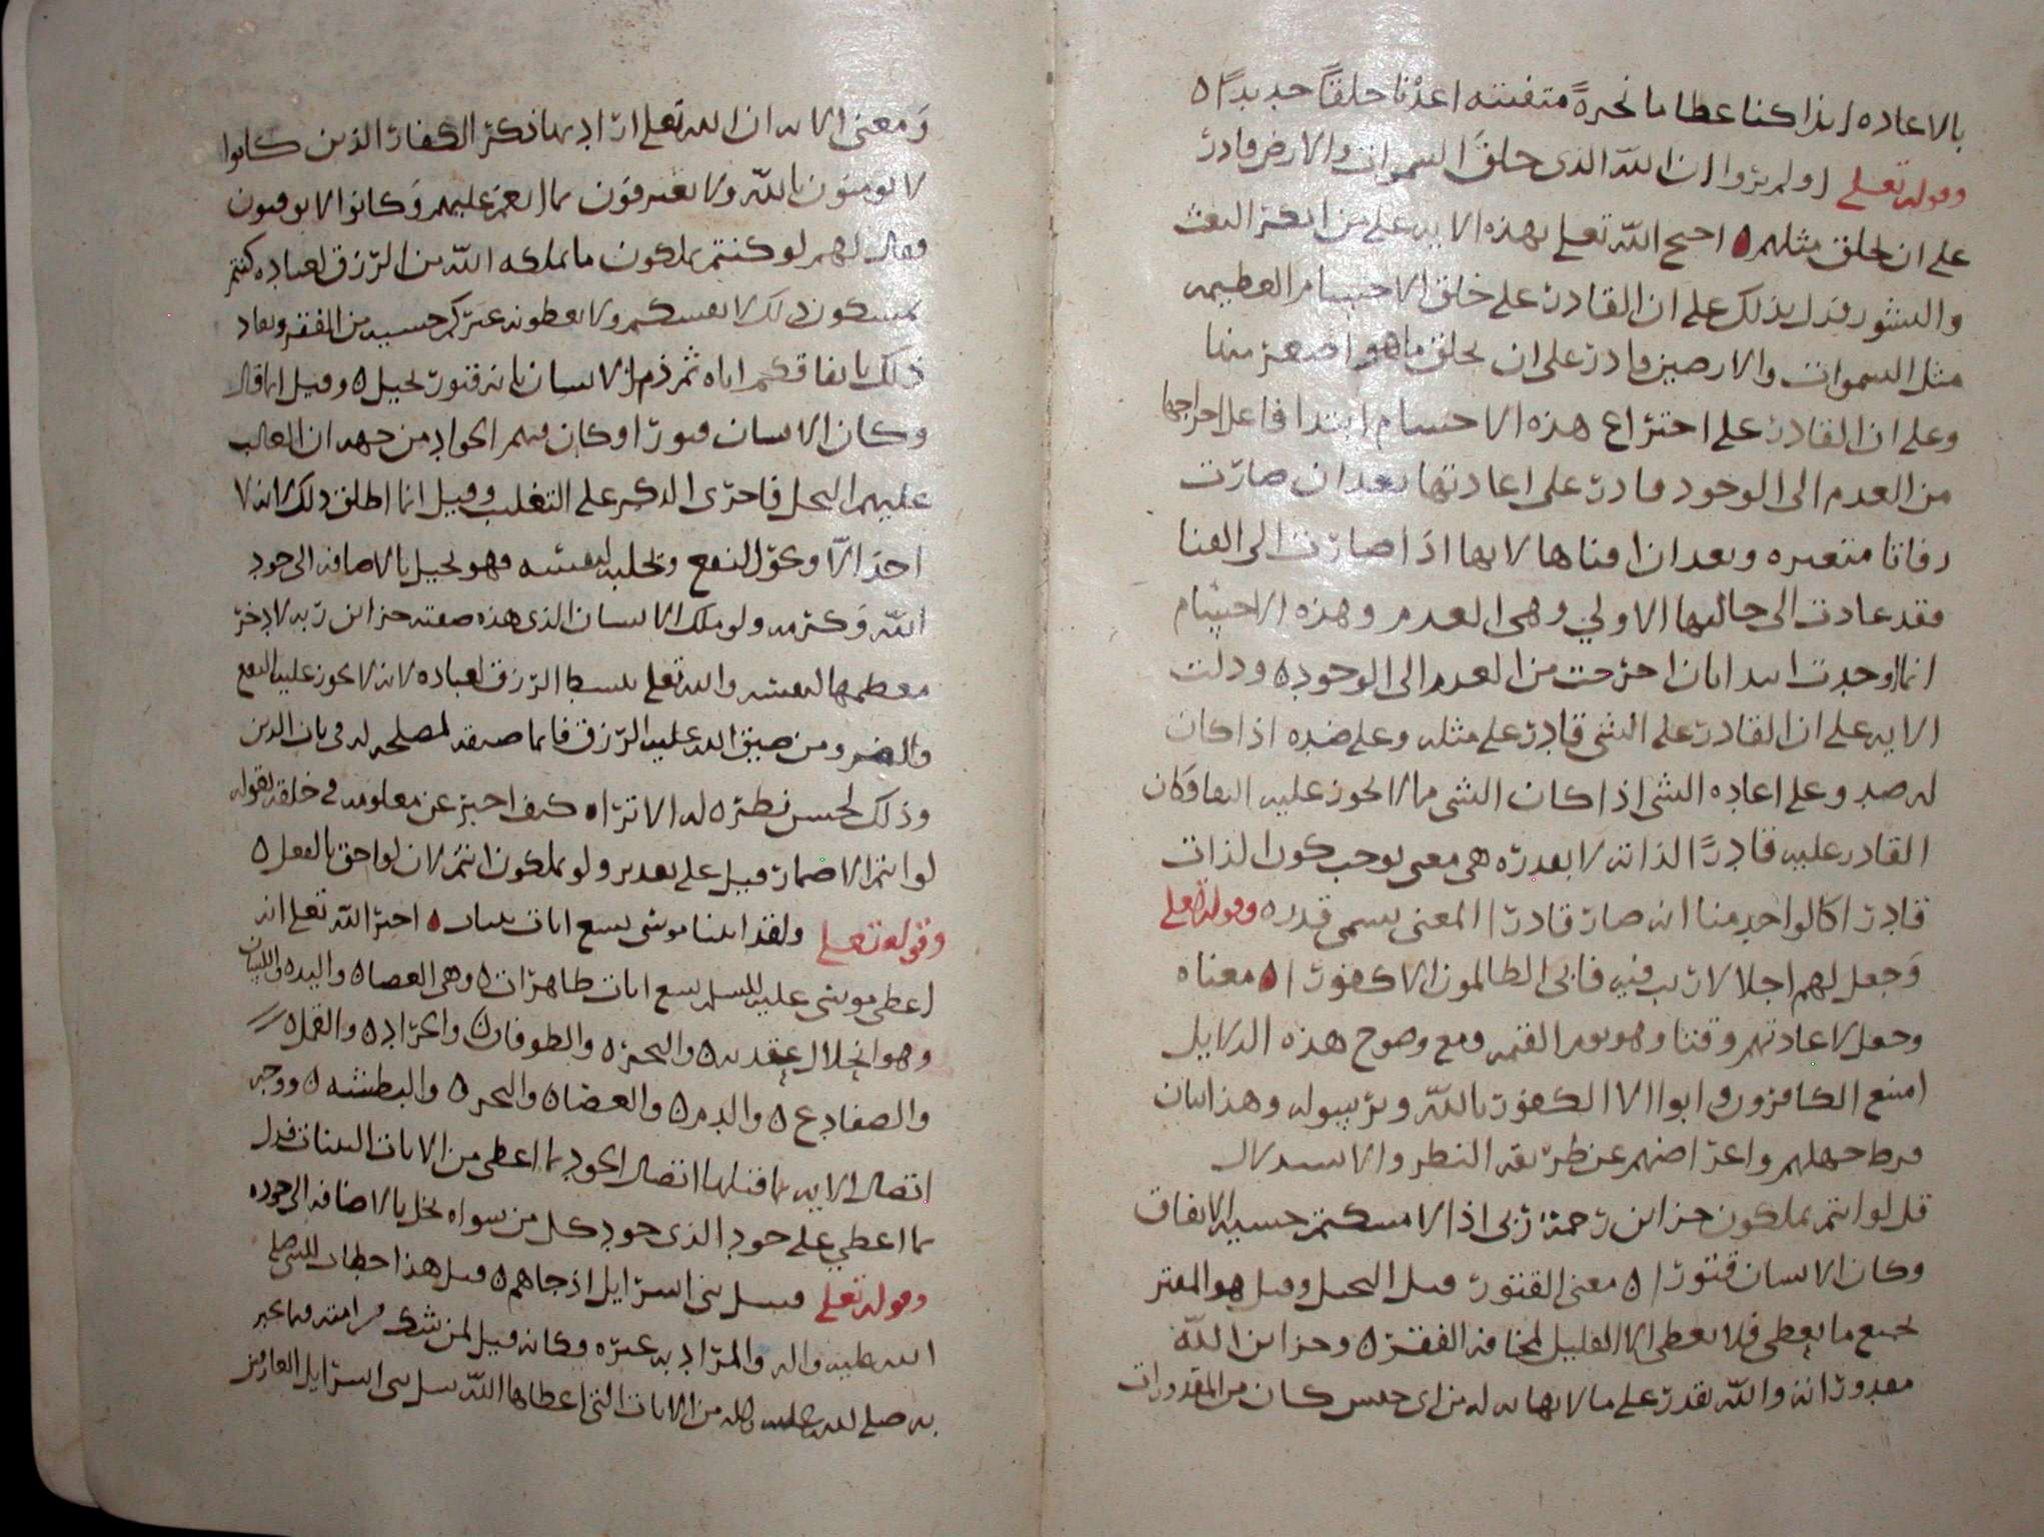 بالاعاده ائذا كنا عظاما نخرةً متفتته اعدنا خلقاً جديداً ٥
وقوله تعلى اولم يروا ان الله الذى خلق السموات والارض قادر
على ان يخلق مثلهم ٥ احتج الله تعلى بهذه الايه على من انكر البعث
والنشور فدل بذلك على ان القادر على خلق الاجسام العظيمه
مثل السموات والارضين قادر على ان يخلق ما هو اصغر منها
وعلى ان القادر على اختراع هذه الاجسام ابتدا فاعلا اخراجها
من العدم الى الوجود قادر على اعادتها بعد ان صارت
رفاتا متغيره وبعد ان افناها لانها اذا صارت الى الفنا
فقد عادت الى حالتها الاولي وهى العدم وهذه الاجسام
انما وجدت ابتدا بان اخرجت من العدم الى الوجود ٥ ودلت
الايه على ان القادر على الشى قادر على مثله وعلى ضده اذا كان
له ضد وعلى اعاده الشى اذا كان الشى مما لا يجوز عليه البقا وكان
القادر عليه قادرًا لذاته لا بقدره هى معنى يوجب كون الذات
قادرا كالواحد منا انه صار قادرا لمعنى يسمى قدره ٥ وقوله تعلى
وَجعل لهم اجلا لا ريب فيه فابى الظالمون الا كفورا ٥ معناه
وجعل لاعادتهم وقتا وهو يوم القيمه ومع وضوح هذه الدلايل
امتنع الكافرون وابوا الا الكفور بالله وبرسوله وهذا بيان
فرط جهلهم واعراضهم عن طريقه النظر والاستدلال
قل لو انتم تملكون خزاين رحمة ربى اذا لامسكتم خشيه الانفاق
وكان الانسان قتورا ٥ معنى القتور قيل البخيل وقيل هو المقتر
بجميع ما يعطى فلا يعطى الا القليل لمخافه الفقر ٥ وخزاين الله
مقدوراته والله يقدر على ما لا نهايه له من اى جنس كان من المقدورات
وَمعنى الايه ان الله تعلى اراد بهاذكر الكفار الذين كانوا
لا يومنون بالله ولا يعترفون بما انعم عليهم وَكانوا لا يوقنون
فقال لهم لو كنتم تملكون ما يملكه الله من الرزق لعباده كنتم
تمسكون ذلك لانفسكم ولا تعطونه غيركم خشيه من الفقر ونفاد
ذلك بانفاقكم اياه ثم ذم الانسان بانه قتور بخيل ٥ وقيل انما قال
وكان الانسان قتورا وكان فيهم الجواد من جهه ان الغالب
عليهم البخل فاجرى الذكر على التغلب وقيل انما اطلق ذلك لانه لا
احد الا وبحوّ النفع ويجلبه لنفسه فهو بخيل بالاضافه الى جود
الله وَكرمه ولو ملك الانسان الذى هذه صفته خزاين ربه لادخر
معظمها لنفسه والله تعلى يبسط الرزق لعباده لانه لا يجوز عليه النفع
والضر ومن ضيق الله عليه الرزق فانما ضيقه لمصلحه له فى باب الدين
وذلك لحسن نظره له الا تراه كيف اخبر عن معلومه في خلقه بقوله
لو انتم الاضمار قيل على تقدير ولو تملكون انتم لان لو احق بالفعل ٥
وقوله تعلى ولقد اتينا موسى تسع ايات بينات ٥ اخبر الله تعلى انه
اعطى موسى عليه السلم تسع ايات ظاهرات ٥ وهى العصا ٥ واليد ٥ واللسان
وهو انحلال عقدته ٥ والبحر ٥ والطوفان ٥ والجراد ٥ والقمل ٥
والضفادع ٥ والدم ٥ والعصا ٥ والبحر ٥ والبطشه ٥ ووجه
اتصال الايه بما قبلها اتصال الجود بما اعطى من الايات البينات فدل
بما اعطي على جود الذى جود كل من سواه بخل بالاضافه الى جوده
وقوله تعلى فسل بنى اسرايل اذ جاهم ٥ قيل هذا خطاب للنبى صلى
الله عليه واله والمراد به غيره وكانه قيل لمن شك من امته فيما خبر
به صلى الله عليه واله من الايات التى اعطاها الله سل بنى اسرايل العارفين